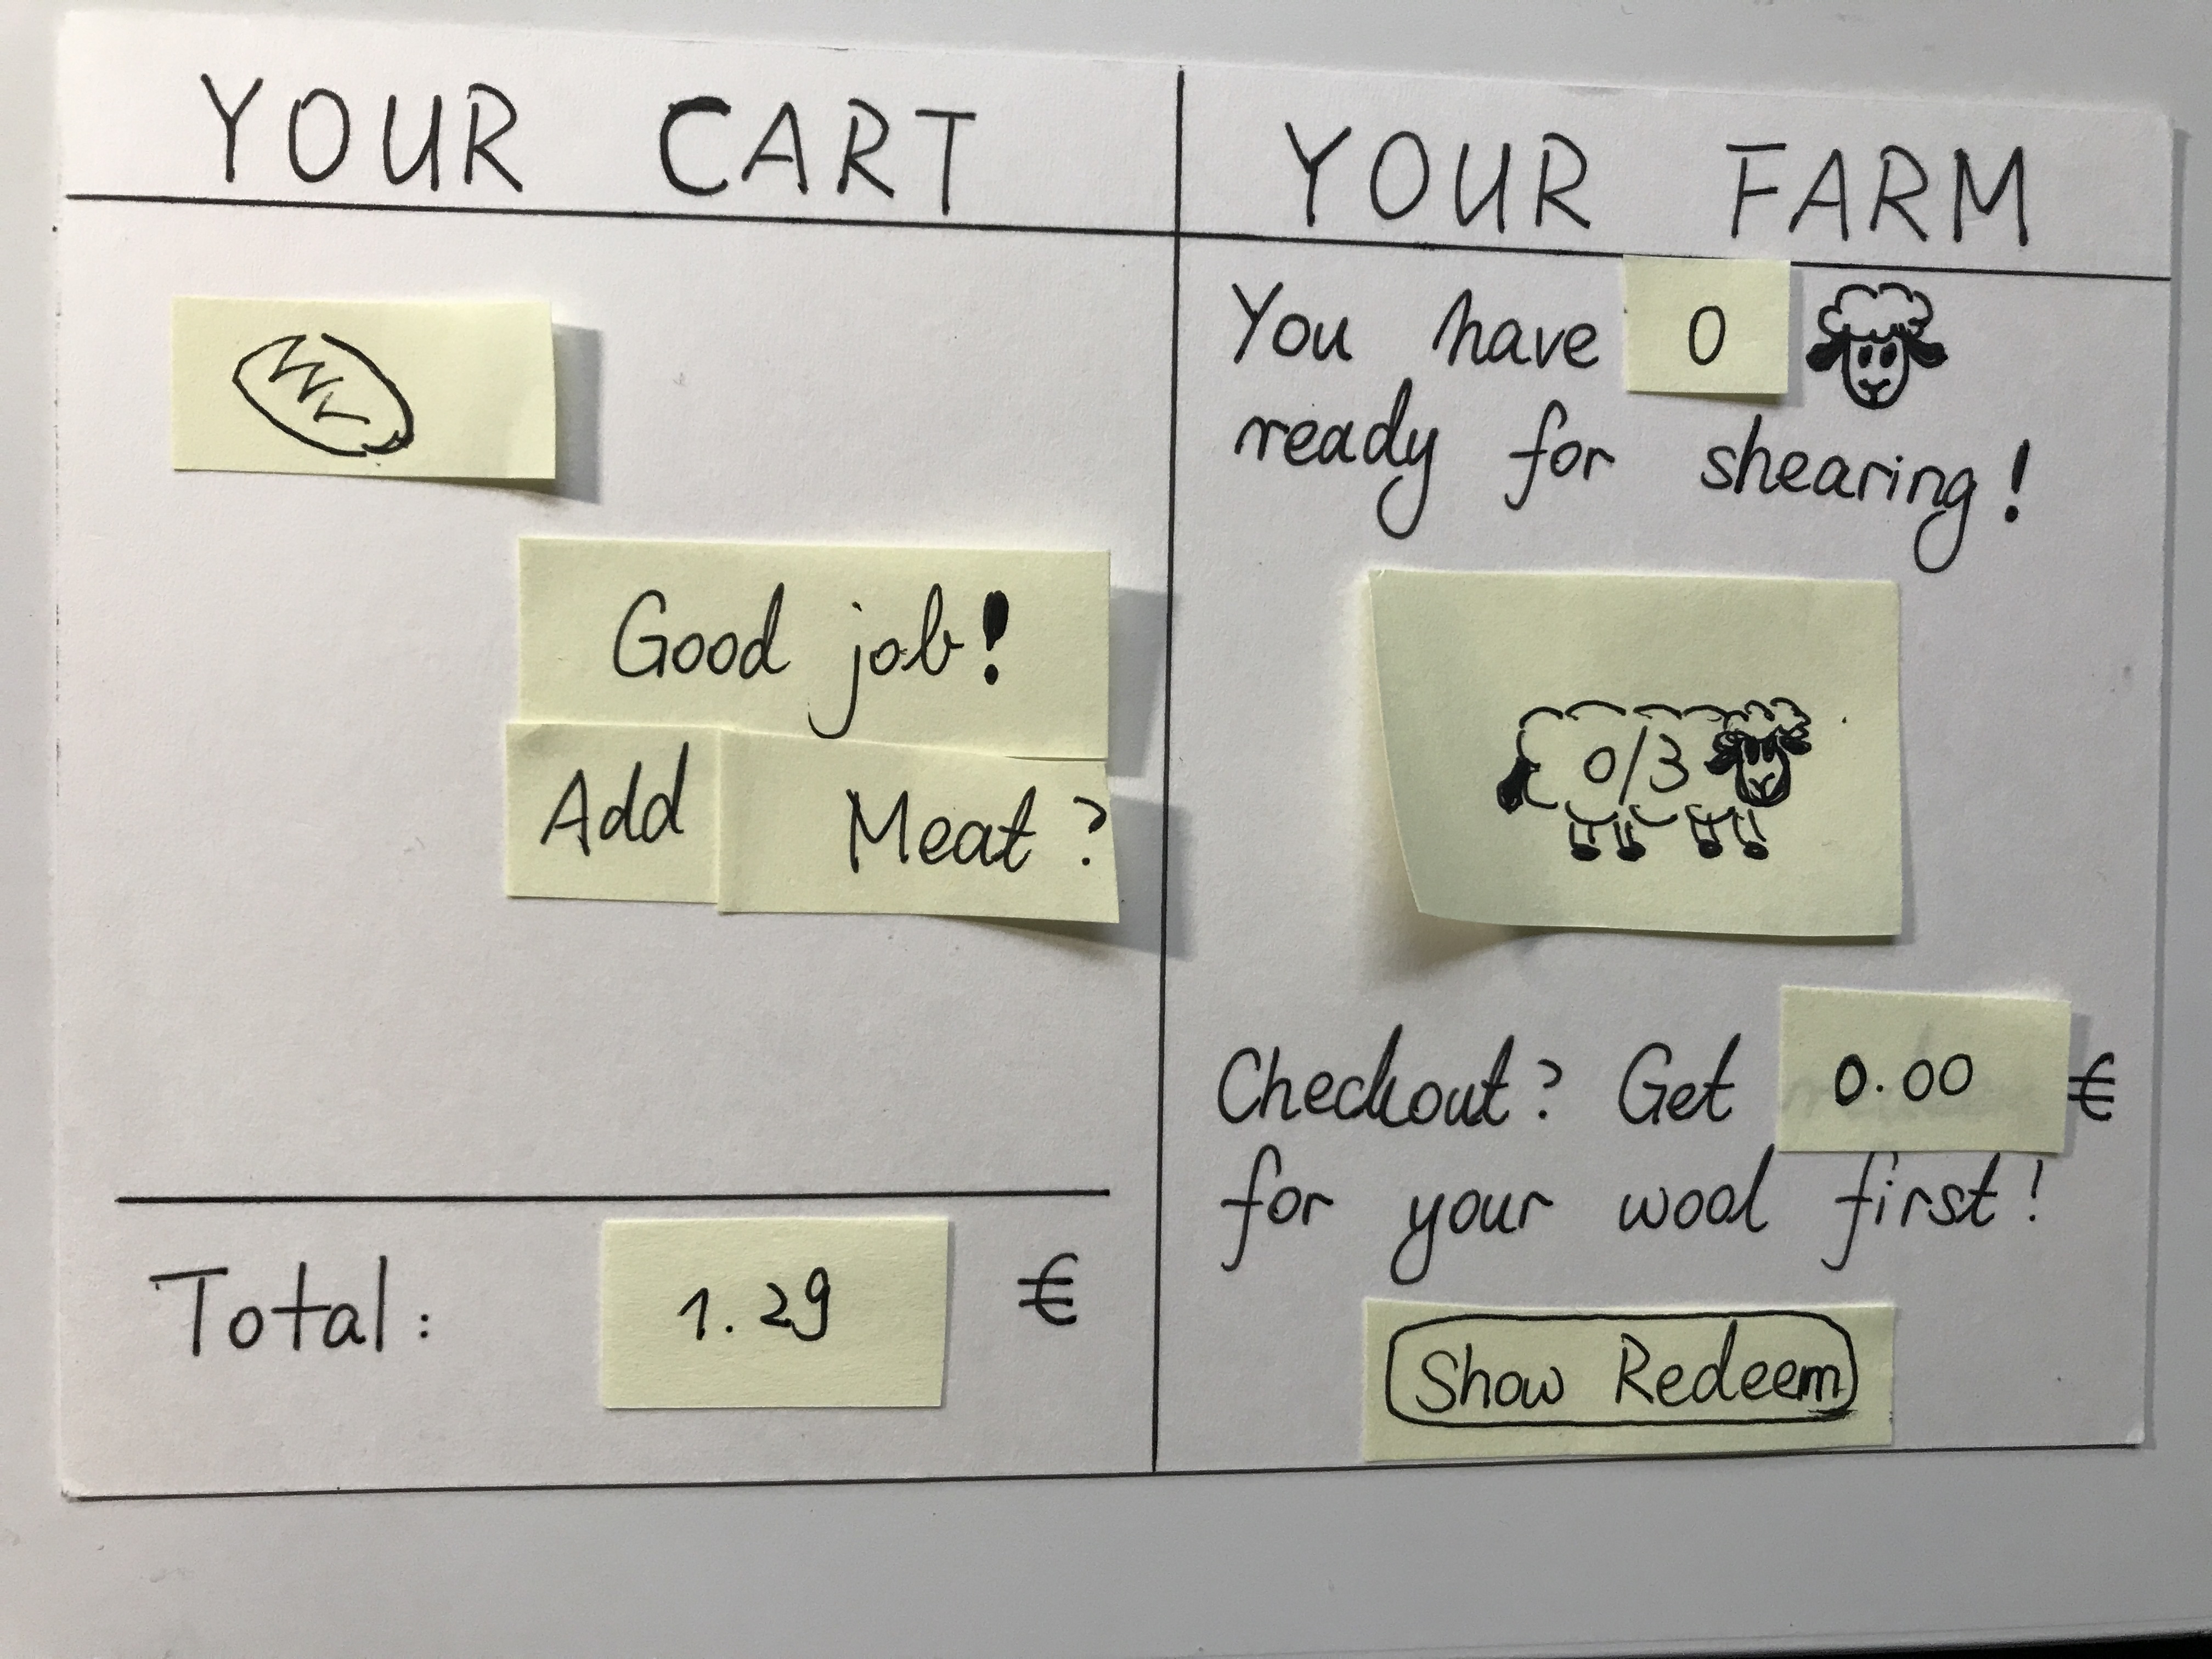 YOUR CART
Good job!
Add Meat?
Total: 1.29 €
YOUR FARM
You have 0
ready for shearing!
0/3
Checkout? Get 0.00 €
for your wool first!
Show Redeem